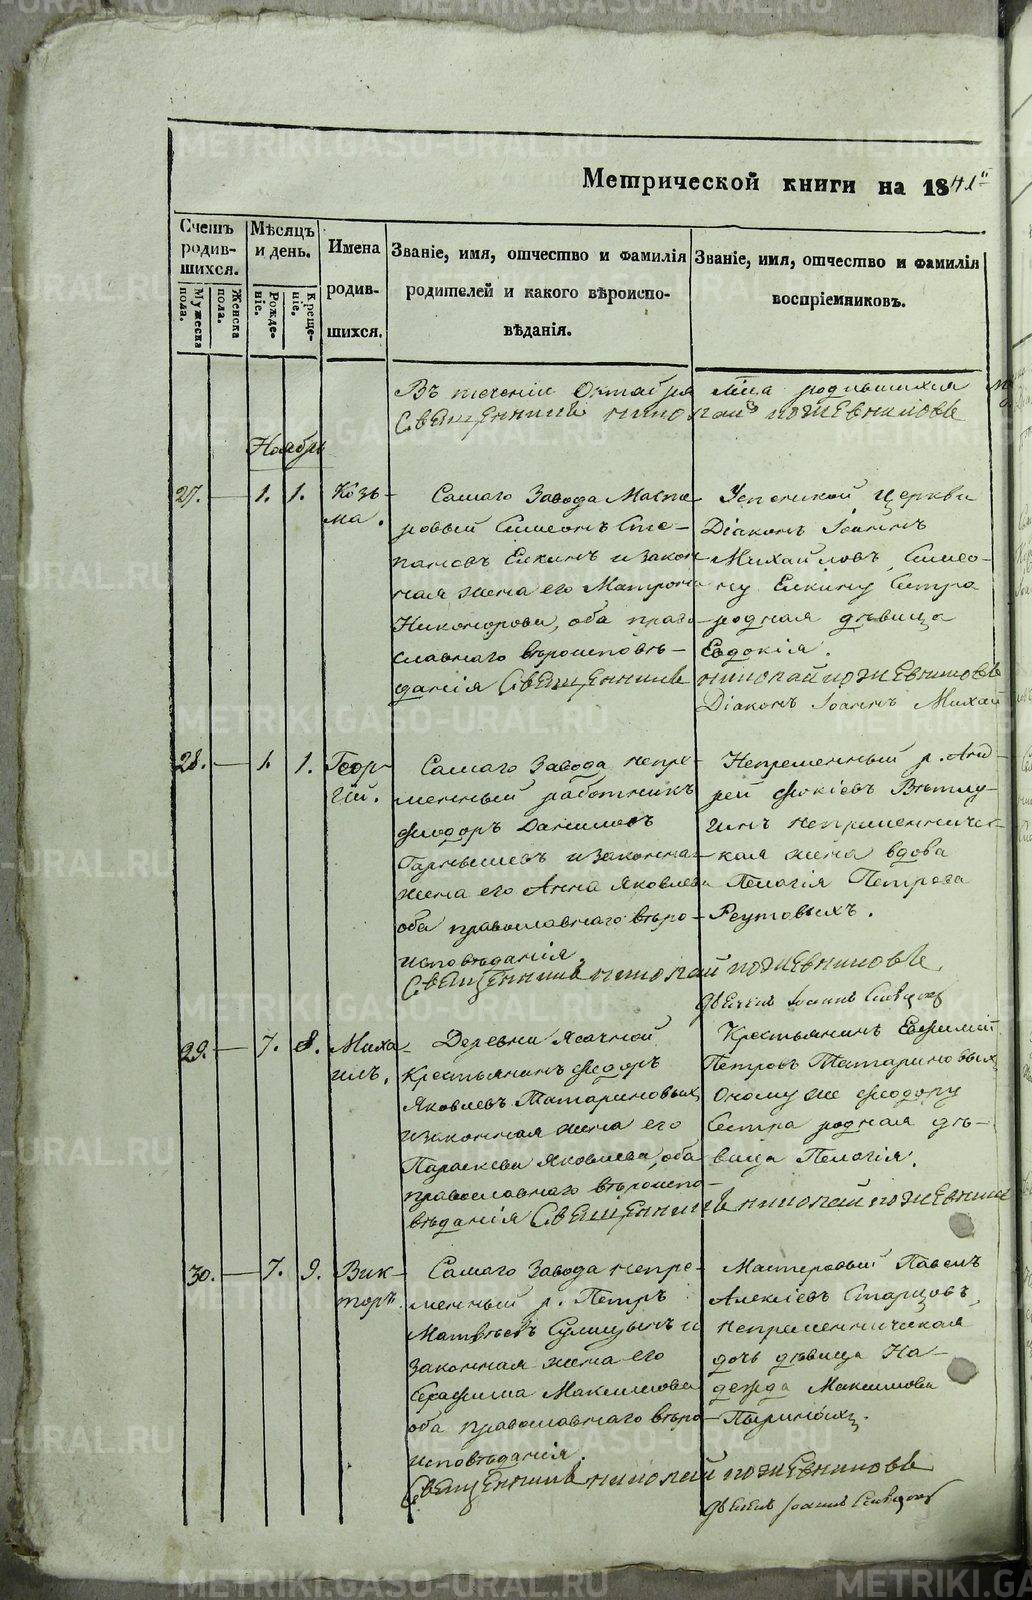 Метрической книги на 1841й
Счетъ родившихся.
Мужеска пола.
Женска пола.
Мѣсяцъ и день.
Рожденіе.
Крещеніе.
Имена родившихся.
Званіе, имя, отчество и фамилія
родителей и какого вѣроиспо-
вѣданія.
Званіе, имя, отчество и фамилія
воспріемниковъ.
Въ теченіи Октября м̃ца родившихся
Священникъ Николай Пожевниковъ
Ноябрь
27. 1. 1. Козь-
ма.
Самаго Завода Масте-
ровый Симеонъ Сте-
пановъ Елкинъ и закон-
ная жена его Матрона
Никонорова, оба право-
славнаго вѣроисповѣ-
данія Священникъ Николай Пожевниковъ
Успенской церкви
Діаконъ Іоаннъ
Михайловъ, Симео-
ну Елкину Сестра
родная дѣвица
Евдокія.
Діаконъ Іоаннъ Михай
28. 1. 1. Геор-
гій.
Самаго Завода непре-
менный работникъ
Ѳиодоръ Даниловъ
и законна-
жена его Анна Яковлева
оба православнаго вѣро-
исповѣданія.
Священникъ Николай Пожевниковъ
Непременный р. Анд-
рей Фокіевъ Ветлу-
гинъ непременниче-
ская жена вдова
Пелагія Петрова
Реутовыхъ.
Іоаннъ
29. 7. 8. Миха-
илъ.
Деревни Ясачной
Крестьянинъ Ѳеодоръ
Яковлевъ Татариновыхъ
и законная жена его
Параскева Яковлева, оба
православнаго вѣроиспо-
вѣданія Священникъ Николай Пожевник
Крестьянинъ Евфимій
Петровъ Татариновыхъ
Оному же Ѳеодору
Сестра родная дѣ-
вица Пелагія.
30. 7. 9. Вик-
торъ.
Самаго Завода непре-
менный р. Петръ
Матвѣевъ Сулицынъ и
законная жена его
Серафима Максимова
оба православнаго вѣро-
исповѣданія.
Священникъ Николай Пожевниковъ
Мастеровый Павелъ
Алексіевъ Старцовъ,
непременническая
дочь дѣвица На-
дежда Максимова
Іоаннъ
METRIKI.GASO-URAL.RU